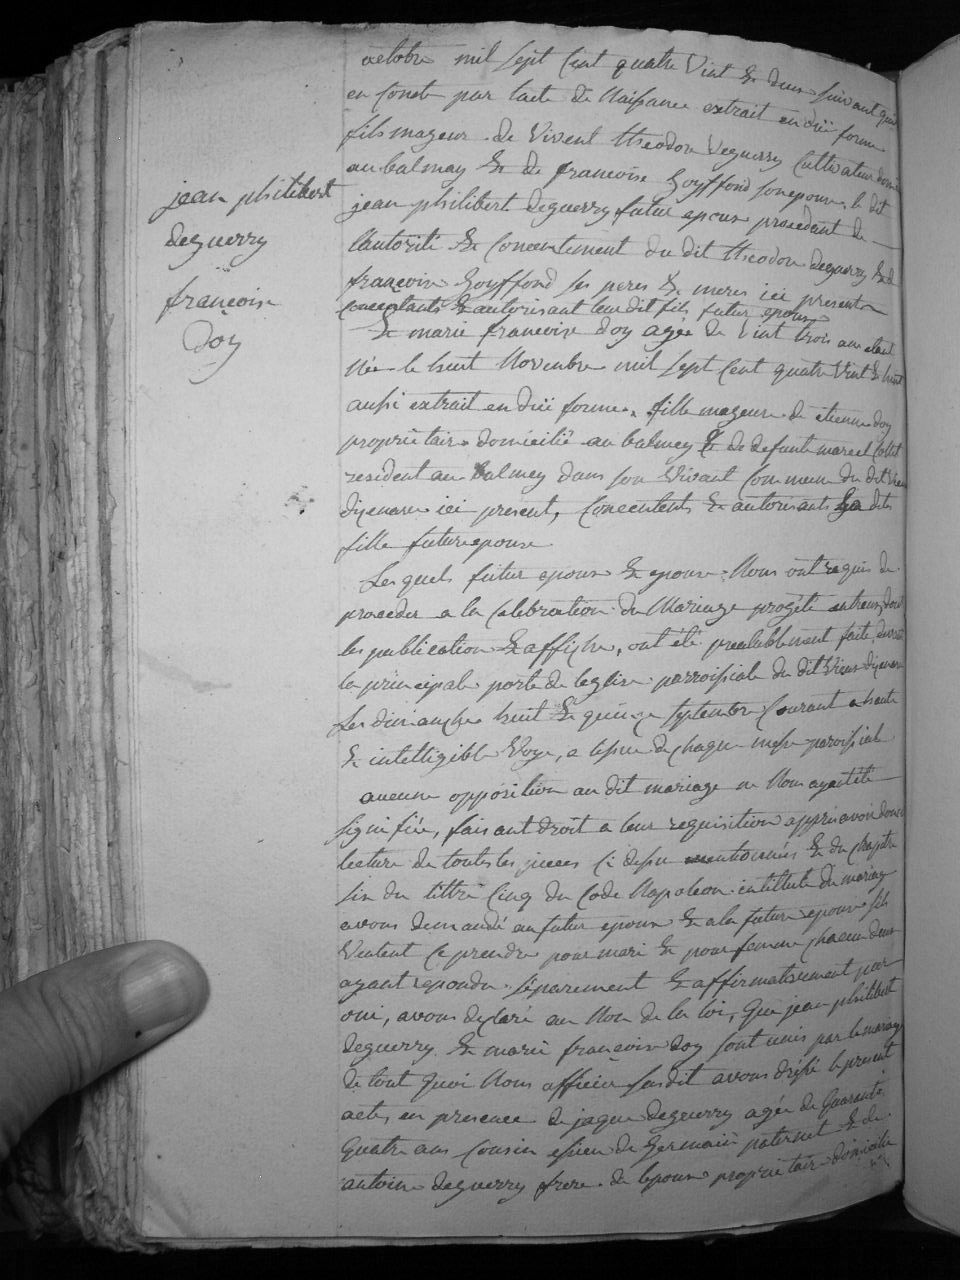 jean philibert
deguerry
françoise
Doy
octobre mil sept Cent quatre Vint & deux suivant quil
en Conste par lacte de Naissance extrait en düe forme
fils mageur de Vivent theodore deguerry Cultivateur
au balmay & de francoise Goyffond son epouse, le dit
jean philibert deguerry futur epoux procedant de
lautorité & Concentement du dit theodore deguerry & de
françoise Goyffond ses peres & meres ici presents
concentants & autorisant leur dit fils futur epoux
& marie francoise Doy agée de Vint trois ans etant
Née le huit Novembre mil sept Cent quatre Vint & huit
aussi extrait en düe forme, fille mageure de etienne doy
proprietaire domicilié au balmey & de defunte
resident au balmey dans son Vivant Commune du dit Vieux
Dizenave ici present, Concentents & autorisants Sa dite
fille future epouse
Les quels futur epoux & epouse Nous ont requis de
proceder a la Celebration du Mariage progété entreux, dont
les publication & affiche, ont été prealablement faite, devant
la principale porte de leglise parroissiale du dit Vieux dizenave
Les dimanche huit & quinze Septembre Courant a haute
& intelligible Voye, a lissue de chaque messe paroissiale
aucune opposition au dit mariage ne Nous ayant été
signifiée, faisant droit a leur requisition appres avoir donné
lecture de toutes les pieces Ci dessu mentionnées & du chapitre
six du tittre Cinq du Code Napoleon intittulé du mariage
avons demandé au futur epoux & a la future epouse sils
Veulent ce prendre pour mari & pour femme, chacun deux
ayant repondu separement & affirmativement par
oui, avons declaré au Nom de la loi, que jean philibert
deguerry & marie françoise doy sont unis par le mariage
de tout quoi Nous officier susdit avons dressé le present
acte, en presence de jaque deguerry agée de quarente
quatre ans Cousin Germain paternel & de
antoine deguerry frere de lepoux proprietaire domicilié